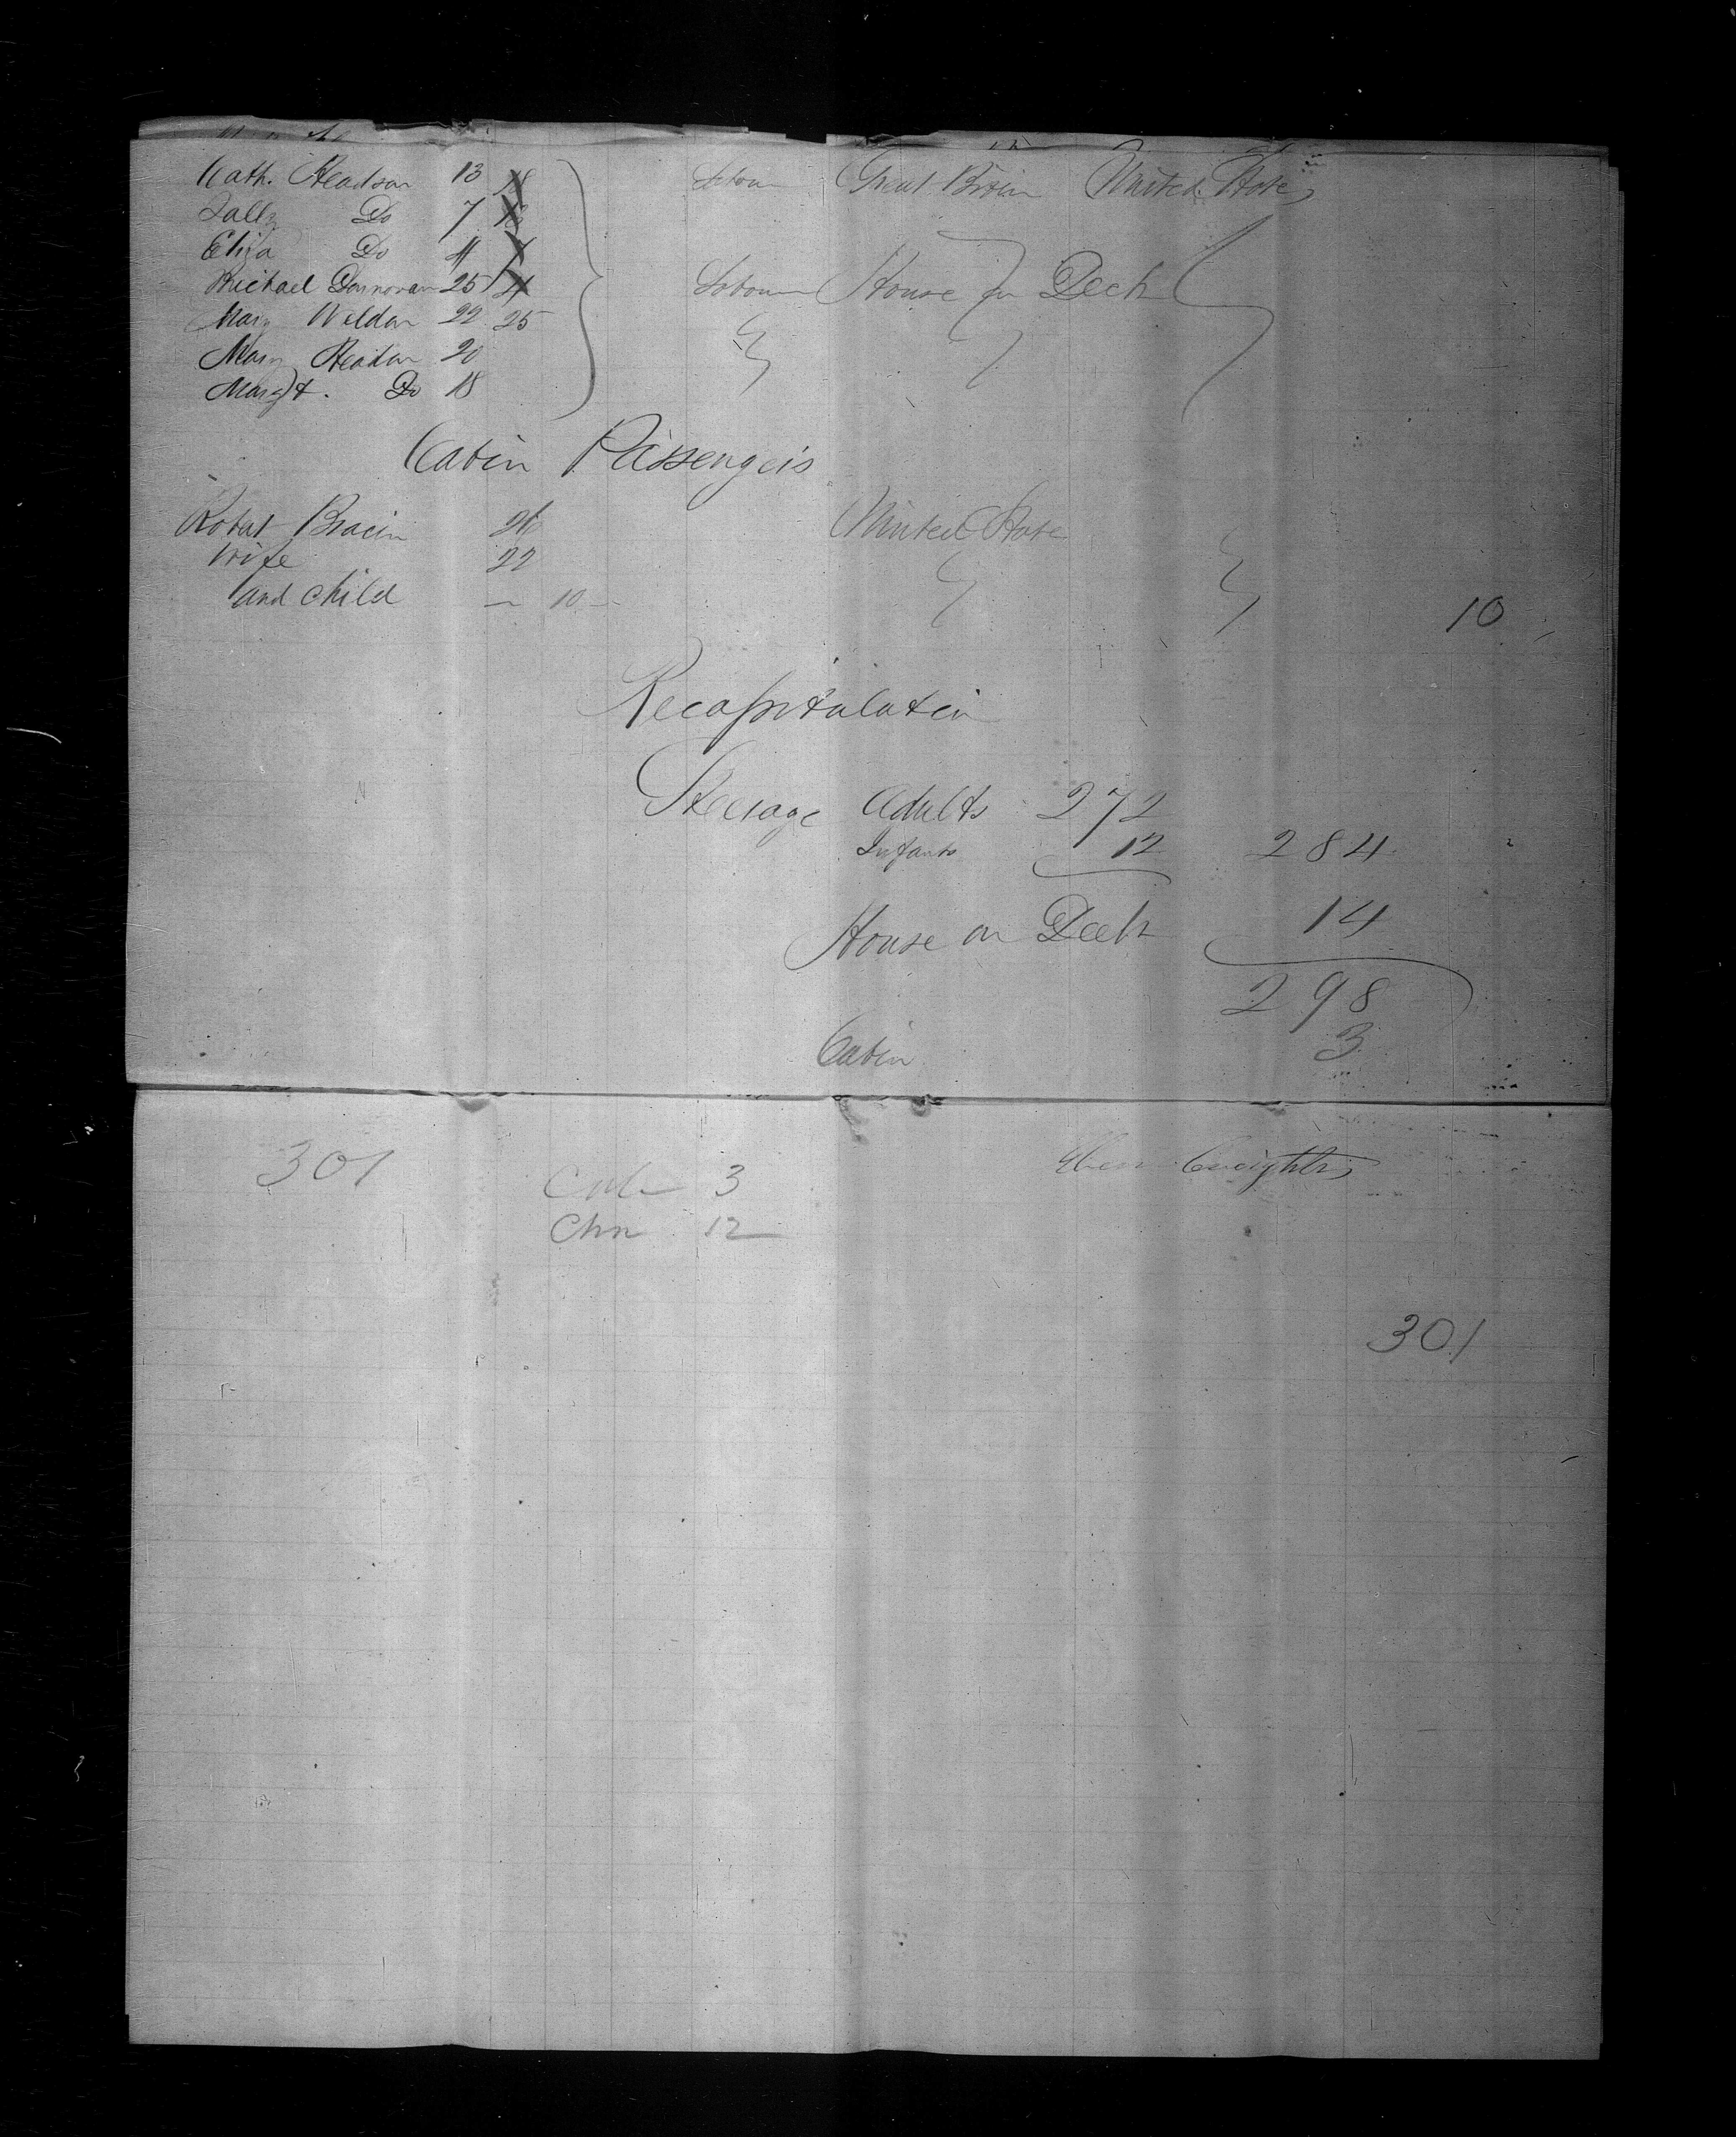 Cath. Headon 13 18 Labour Great Britain United States
Sally Do 7 12
Eliza Do 4
Michael Donnovan 25 21 Labour House on Deck
Mary Weldon 22 25
Mary Headon 20
Margt. Do 18
Cabin Passengers
Robert 26 United State
Wife 22
and child — 10 — 10
Recapitulation
Steerage Adults 272
Infants 12 284
House on Deck 14
298
Cabin 3
301 Cab 3
Chn 12
Creighton
301